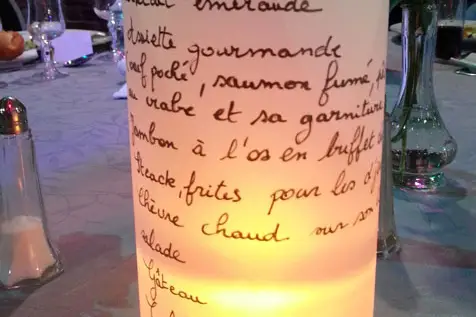 émeraude
assiette gourmande
oeuf poché, saumon fumé,
au crabe et sa garniture
Jambon à l'os en buffet
Steack, frites pour les
chèvre chaud sur son
salade
Gâteau